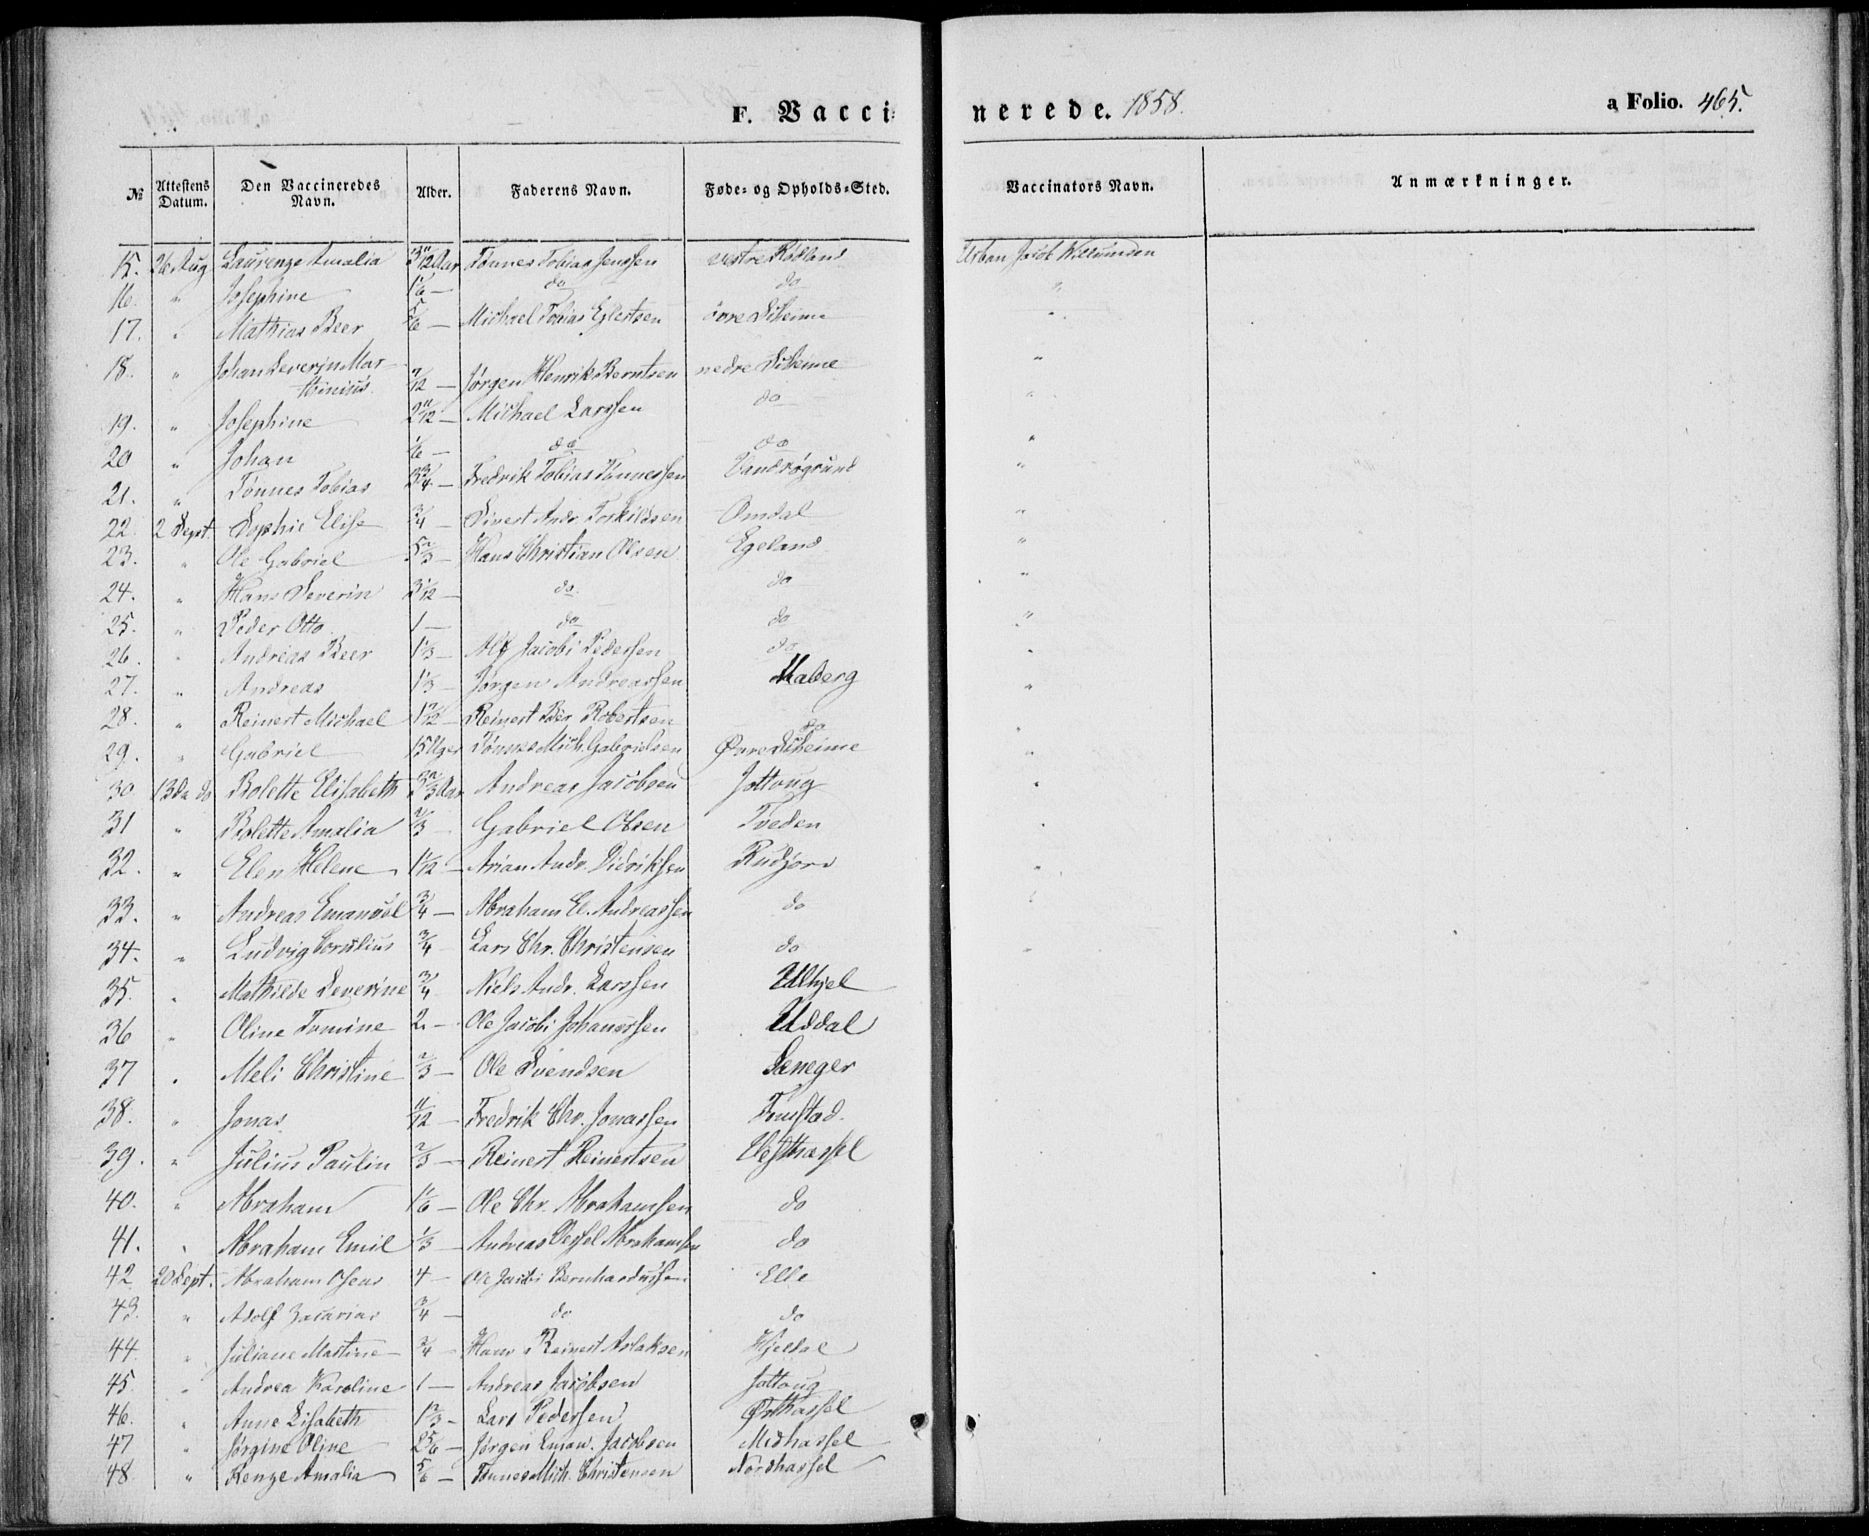 F. Vacci-
nerede. 1858.
a Folio. 465.
№ Attestens Datum. Den Vaccineredes Navn. Alder. Faderens Navn. Føde- og Opholds-Sted. Vaccinators Navn. Anmærkninger.
15. 26 Aug Laurenze Amalia 3 11/12 Aar Tønnes Tobias Jenssen vestre Rødland Urban Jacob
16. " Josephine 1 1/6 — do do "
17. " Mathias Beer 5/6 — Michael Tobias Eglertsen övre "
18. " Johan Severin Mar-
thinius 7/12 — Jørgen Henrik Berntsen nedre "
19. " Josephine 2 11/12 — Michael Larssen do "
20 " Johan 1/6 — do do "
21. " Tønnes Tobias 3 3/4 — Fredrik Tobias Tønnessen "
22. 2 Sept. Sophie Elise 3/4 — Sivert Andr. Torkildsen Omdal "
23. " Ole Gabriel 5 2/3 — Hans Christian Olsen Egeland "
24. " Hans Severin 3 1/12 — do. do "
25. " Peder Otto 1 — do do "
26. " Andreas Beer 1 1/3 — Alf Jacobi Pedersen do "
27. " Andreas 1 1/3 — Jørgen Andreassen Maberg "
28. " Reinert Michael 1 7/12 — Reinert Ber. Robertsen do "
29. " Gabriel 15 Uger Tønnes Mich. Gabrielsen Øvre "
30. 13de do Bolette Elisabeth 3 2/3 Aar Andreas Jacobsen Jottoug "
31 " Bolette Amalia 2/3 — Gabriel Olsen Tveden "
32. " Elen Helene 1 1/12 — Arian Andr. Didriksen Rudjord "
33. " Andreas Emanuel 3/4 — Abraham El. Andreassen do "
34. " Ludvig Cornelius 3/4 — Lars Chr. Christensen do "
35. " Mathilde Severine 3/4 Niels Andr. Larssen Ulhjel
36 " Oline Tomine 2 — Ole Jacobi Johanessen Uddal
37 " Meli Christine 2/3 — Ole Svendsen
38. " Jonas 11/12 — Fredrik Chr. Jonassen
39. " Julius Paulin 2/3 — Reinert Reinertsen Vesthassel
40. " Abraham 1 1/6 — Ole Chr. Abrahamsen do
41. " Abraham Emil 1/3 — Andreas Vessel Abrahamsen do
42 20 Sept. Abraham Oseas 4 — Ole Jacobi Bernhardussen Elle
43. " Adolf Zacarias 3/4 — do do
44. " Juliane Martine 3/4 — Hans Reinert Aslaksen
45. " Andrea Karoline 1 — Andreas Jacobsen Jottoug
46. " Anne Lisabeth 1 2/3 — Lars Pedersen Østhassel
47 " Jørgine Oline 2 5/6 — Jørgen Eman. Jacobsen Midhassel
48 " Renze Amalia 5/6 — Tønnes Mich. Christensen Nordhassel